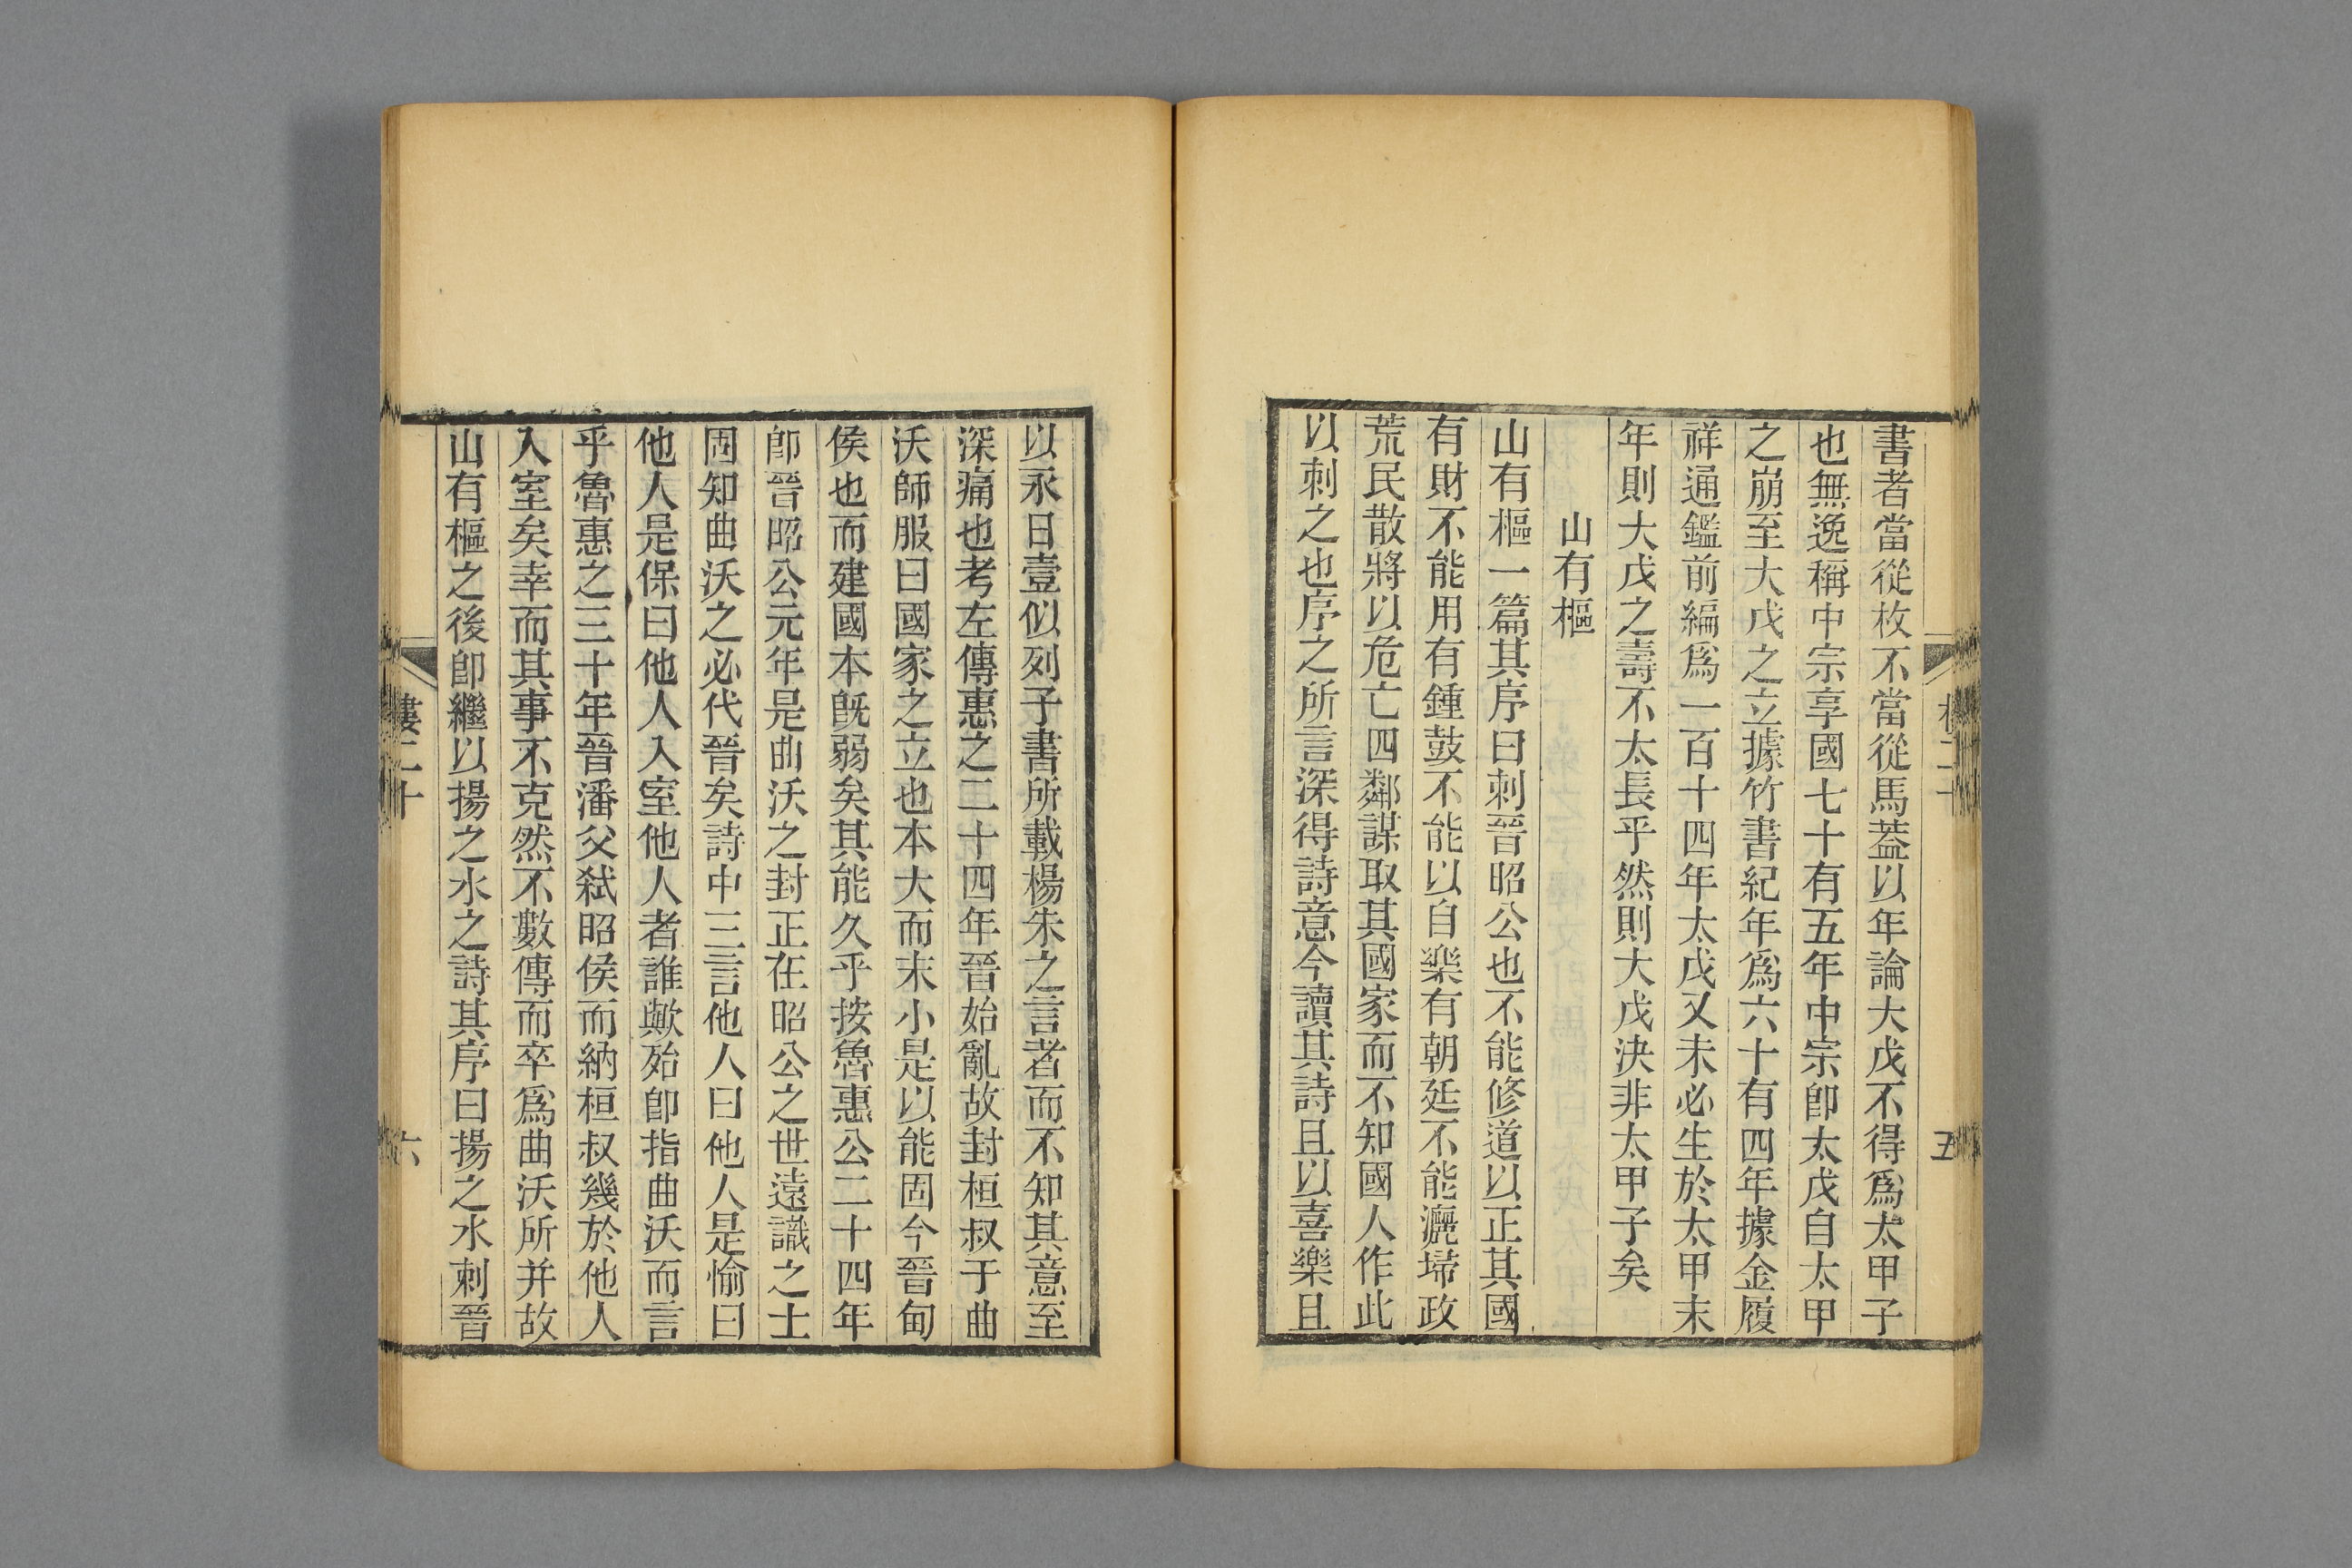 書者當從枚不當從馬葢以年論大戊不得爲太甲子
也無逸稱中宗享國七十有五年中宗卽太戊自太甲
之崩至大戊之立據竹書紀年爲六十有四年據金履
祥通鑑前編爲一百十四年太戊又未必生於太甲末
年則大戊之壽不太長乎然則大戊決非太甲子矣
山有樞
山有樞一篇其序曰刺晉昭公也不能修道以正其國
有財不能用有鍾鼓不能以自樂有朝廷不能灑埽政
荒民散將以危亡四鄰謀取其國家而不知國人作此
以刺之也序之所言深得詩意今讀其詩且以喜樂且
五
以永日壹似列子書所載楊朱之言者而不知其意至
深痛也考左傳惠之二十四年晉始亂故封桓叔于曲
沃師服曰國家之立也本大而末小是以能固今晉甸
侯也而建國本旣弱矣其能久乎按魯惠公二十四年
卽晉昭公元年是曲沃之封正在昭公之世遠識之士
固知曲沃之必代晉矣詩中三言他人曰他人是愉曰
他人是保曰他人入室他人者誰歟殆卽指曲沃而言
乎魯惠之三十年晉潘父弒昭侯而納桓叔幾於他人
入室矣幸而其事不克然不數傳而卒爲曲沃所并故
山有樞之後卽繼以揚之水之詩其序曰揚之水刺晉
樓二十
六